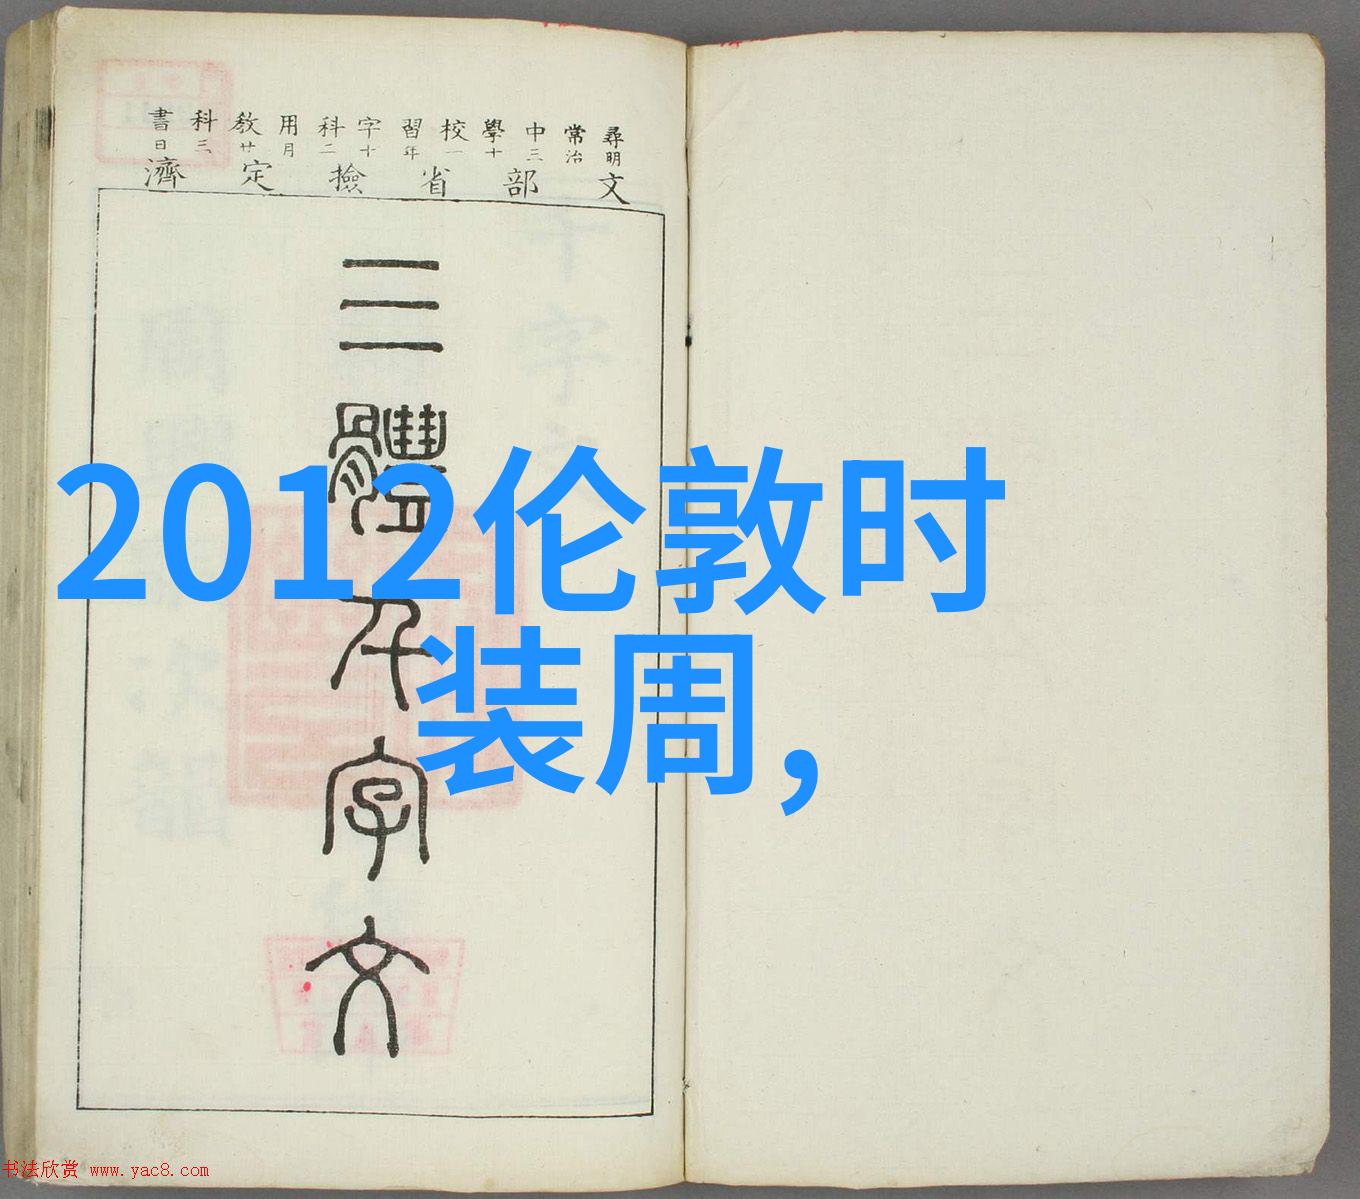 尋常中學校習字科用敎科書
明治三十一年十二月廿三日
文部省撿定濟
三體千字文
2012伦敦时
装周,
书法欣赏 www.yac8.com